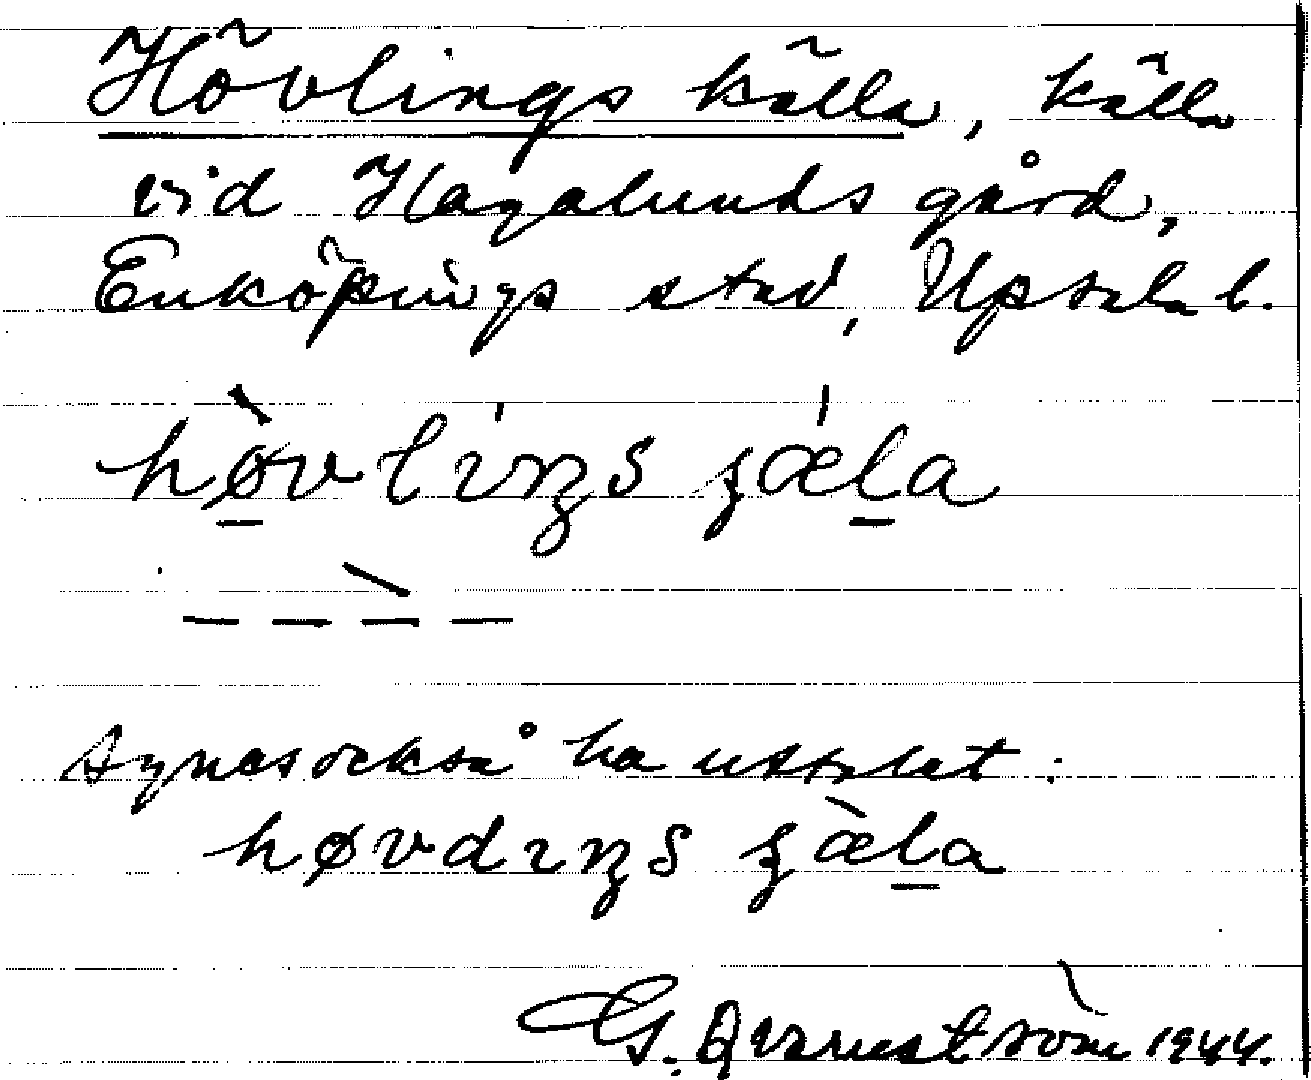 Hövlings källa, källa
vid Hagalunds gård,
Enköpings stad, Upsala l.
hø̀vlíŋs ȿǽla
synes också ha uttalet:
høvdıŋs ȿæ̀la
G. Qvarnström 1944.